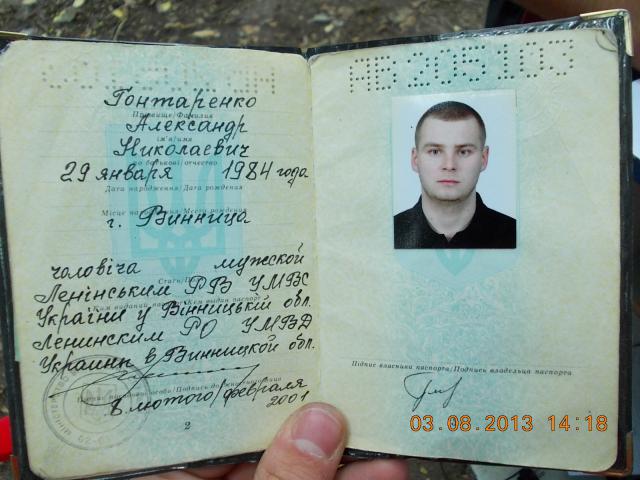 Гонтаренко
Прізвище/Фамилия
Александр
ім'я/имя
Николаевич
по батькові/отчество
29 января 1984 года
Дата народження/Дата рождения
Місце народження/Место рождения
г. Винница
чоловіча мужской
Стать/
Ленінським РВ УМВС
Ким виданий паспорт/Кем выдан паспорт
України у Вінницькій обл.
Ленинским РО УМВД
Украины в Винницкой обл.
8 лютого/февраля
2001
2
АВ 305103
Підпис власника паспорта/Подпись владельца паспорта
03.08.2013 14:18